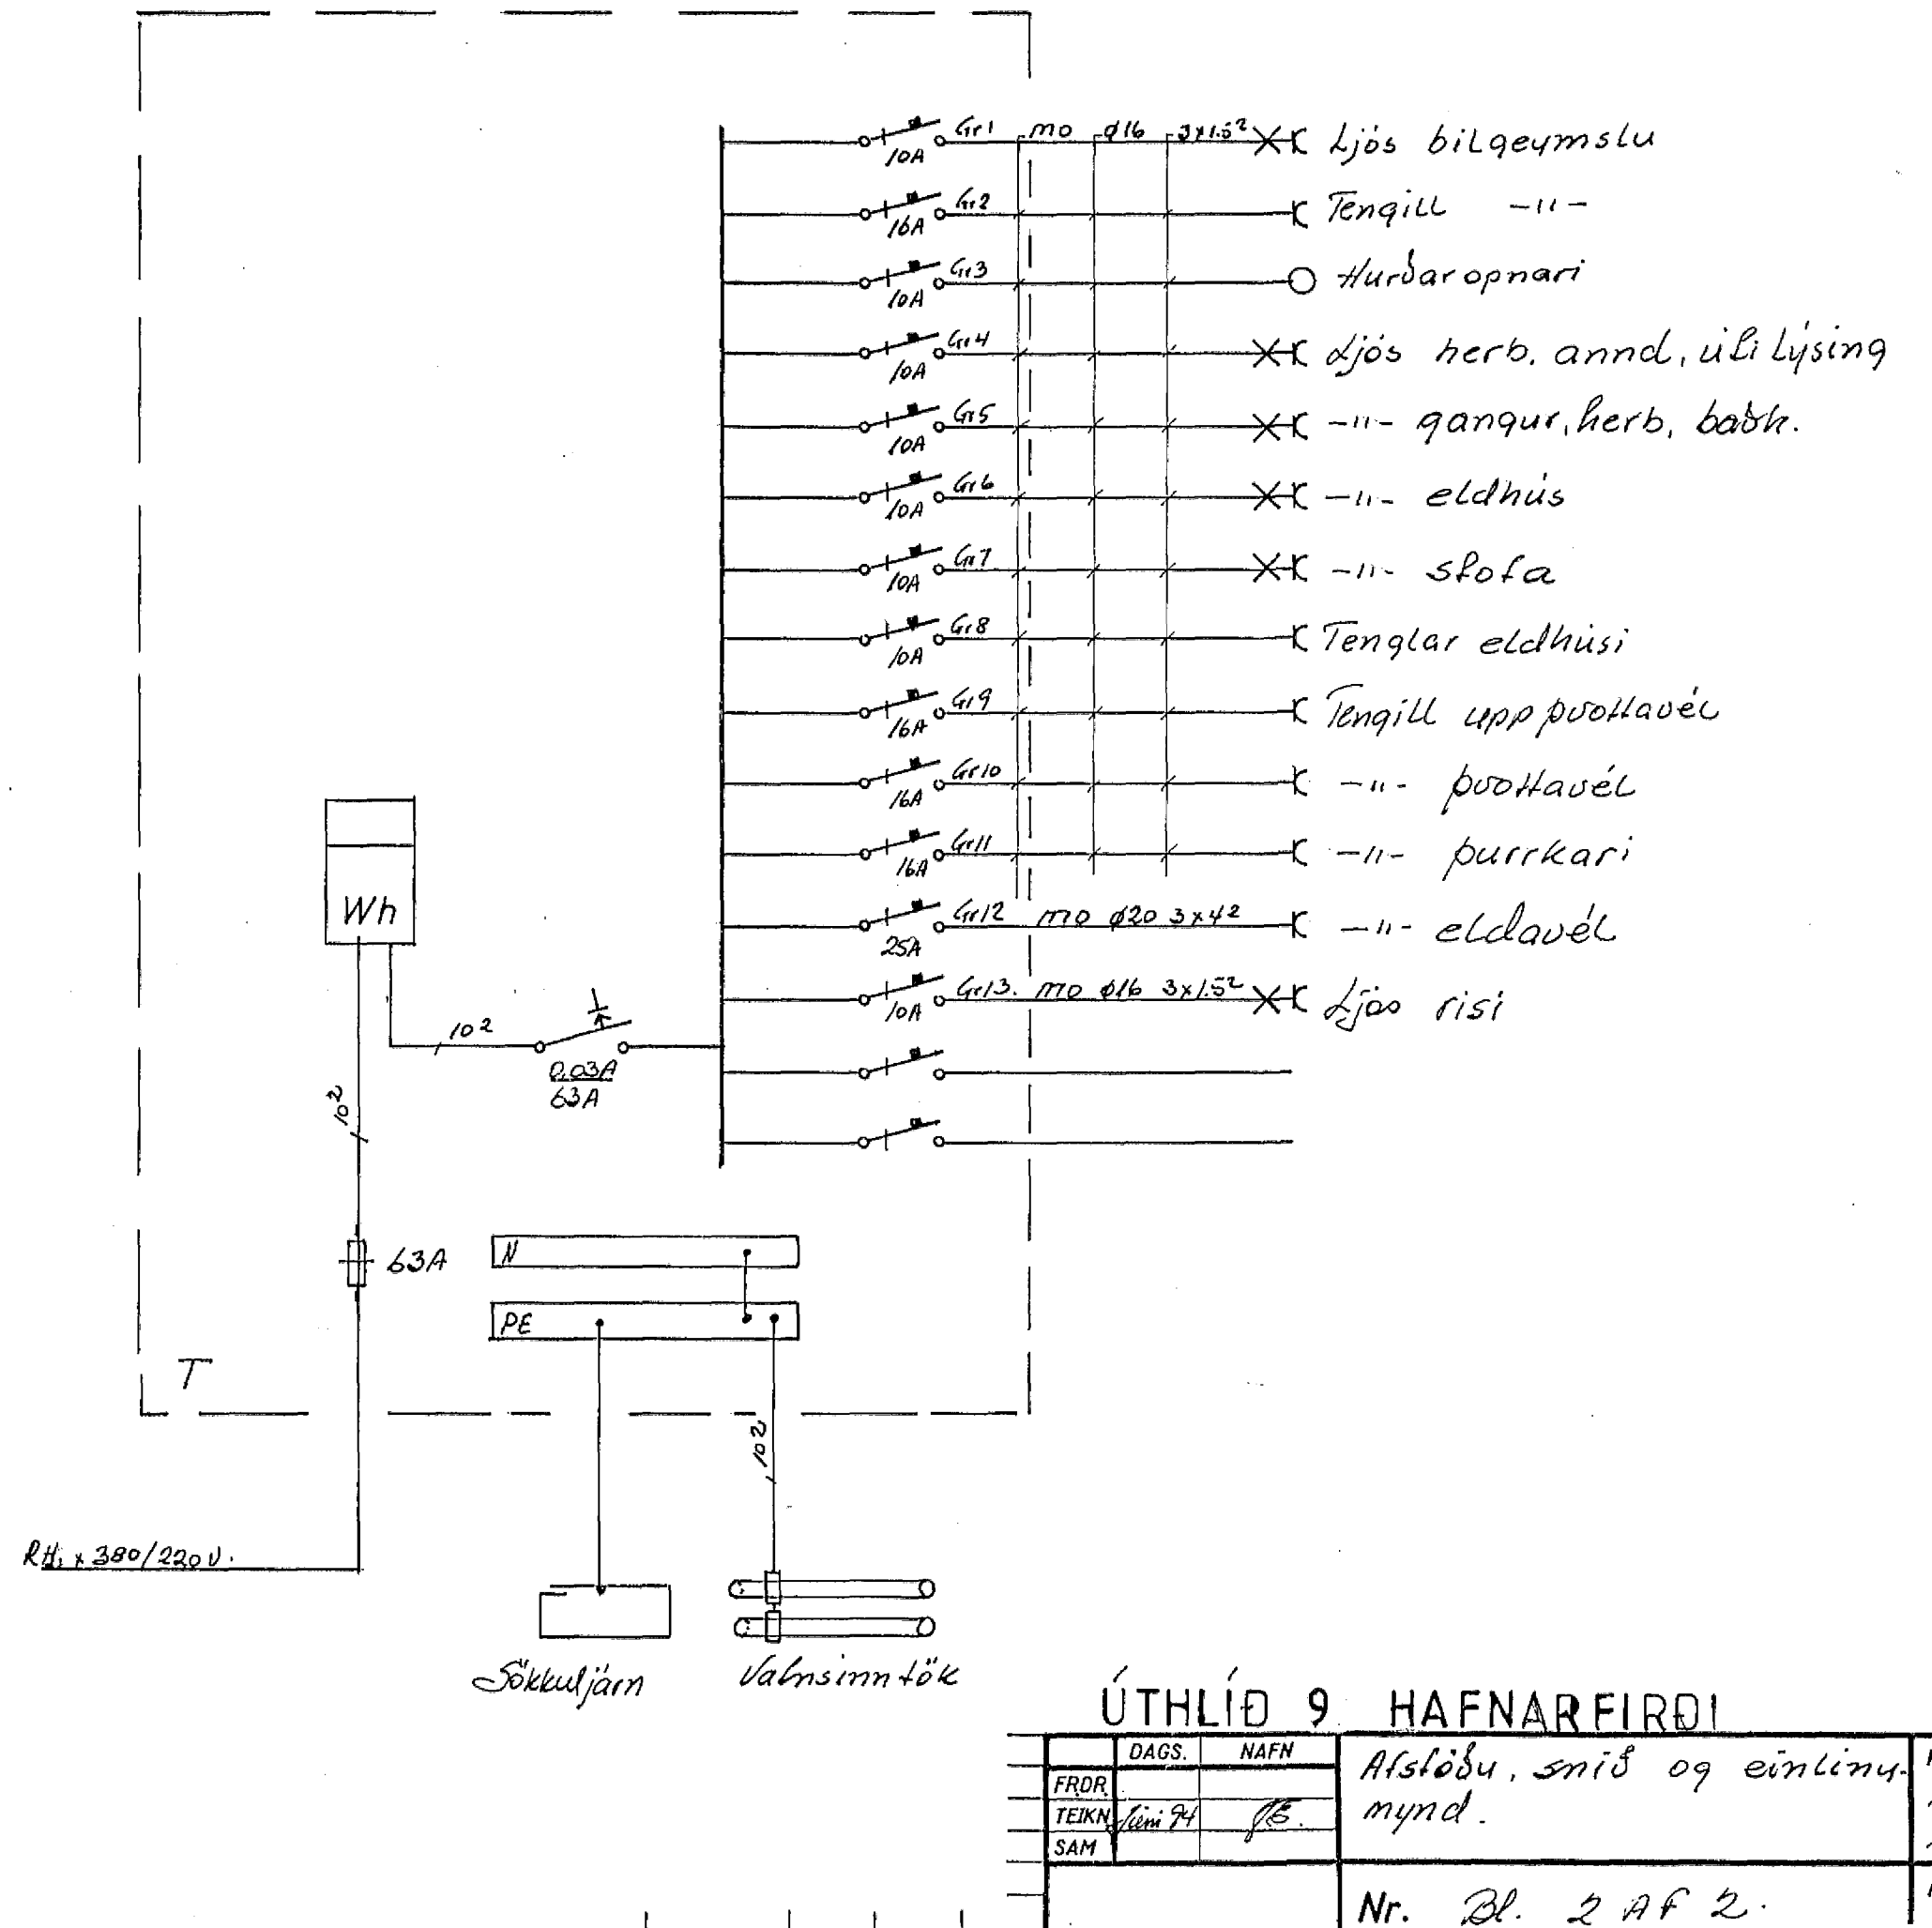 Gr1 mo ø16 3x1.5² Ljós bilgeymslu
10A
Gr2 Tengill -"-
16A
Gr3 Hurðaropnari
10A
Gr4 Ljós herb. annd, úti lýsing
10A
Gr5 -"- gangur, herb, baðh.
10A
Gr6 -"- eldhús
10A
Gr7 -"- stofa
10A
Gr8 Tenglar eldhúsi
10A
Gr9 Tengill uppþvottavél
16A
Gr10 -"- þvottavél
16A
Gr11 -"- þurrkari
16A
Gr12 mo ø20 3x4² -"- eldavél
25A
Gr13. mo ø16 3x1.5² Ljós risi
10A
Wh
10²
0.03A
63A
10²
63A
N
PE
T
10²
RH. x 380/220V.
Sökkuljárn
Vatnsinntök
ÚTHLÍÐ 9 HAFNARFIRÐI
DAGS. NAFN
FRDR
TEIKN Júní 94
SAM
Afstöðu, snið og einlínu-
mynd.
Nr. Bl. 2 AF 2.